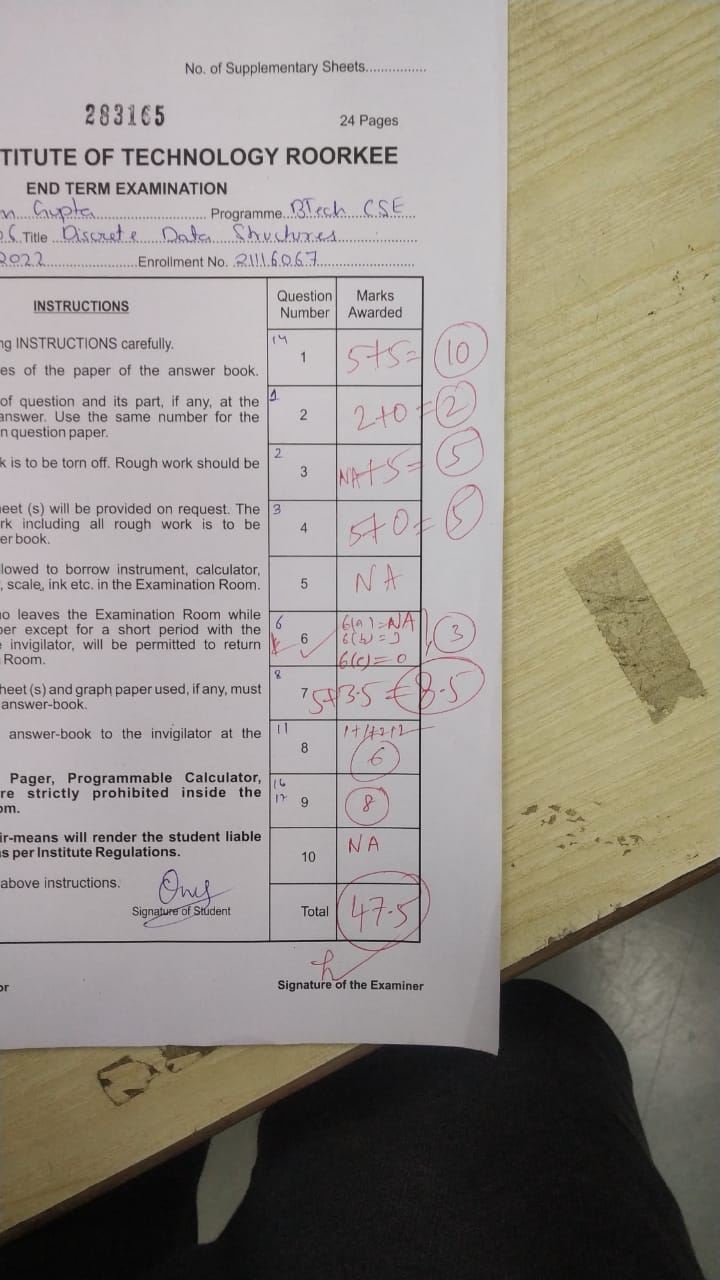 No. of Supplementary Sheets...............
283165
24 Pages
TITUTE OF TECHNOLOGY ROORKEE
END TERM EXAMINATION
n Gupta Programme BTech CSE
Title Discrete Data Structures
2022 Enrollment No. 21116067
INSTRUCTIONS
Question Number
Marks Awarded
ng INSTRUCTIONS carefully.
es of the paper of the answer book.
14
1
5+5= 10
of question and its part, if any, at the
answer. Use the same number for the
n question paper.
1
2
2+0=2
k is to be torn off. Rough work should be
2
3
NA+5= 5
eet (s) will be provided on request. The
rk including all rough work is to be
er book.
3
4
5+0= 5
lowed to borrow instrument, calculator,
, scale, ink etc. in the Examination Room.
5
NA
o leaves the Examination Room while
per except for a short period with the
invigilator, will be permitted to return
Room.
6
6
6(a)=NA
6(b)=3
6(c)=0
3
heet (s) and graph paper used, if any, must
answer-book.
8
7
5+3.5= 8.5
answer-book to the invigilator at the
11
8
6
Pager, Programmable Calculator,
re strictly prohibited inside the
om.
16
17
9
8
ir-means will render the student liable
s per Institute Regulations.
10
NA
above instructions.
Signature of Student
Total
47.5
or
Signature of the Examiner